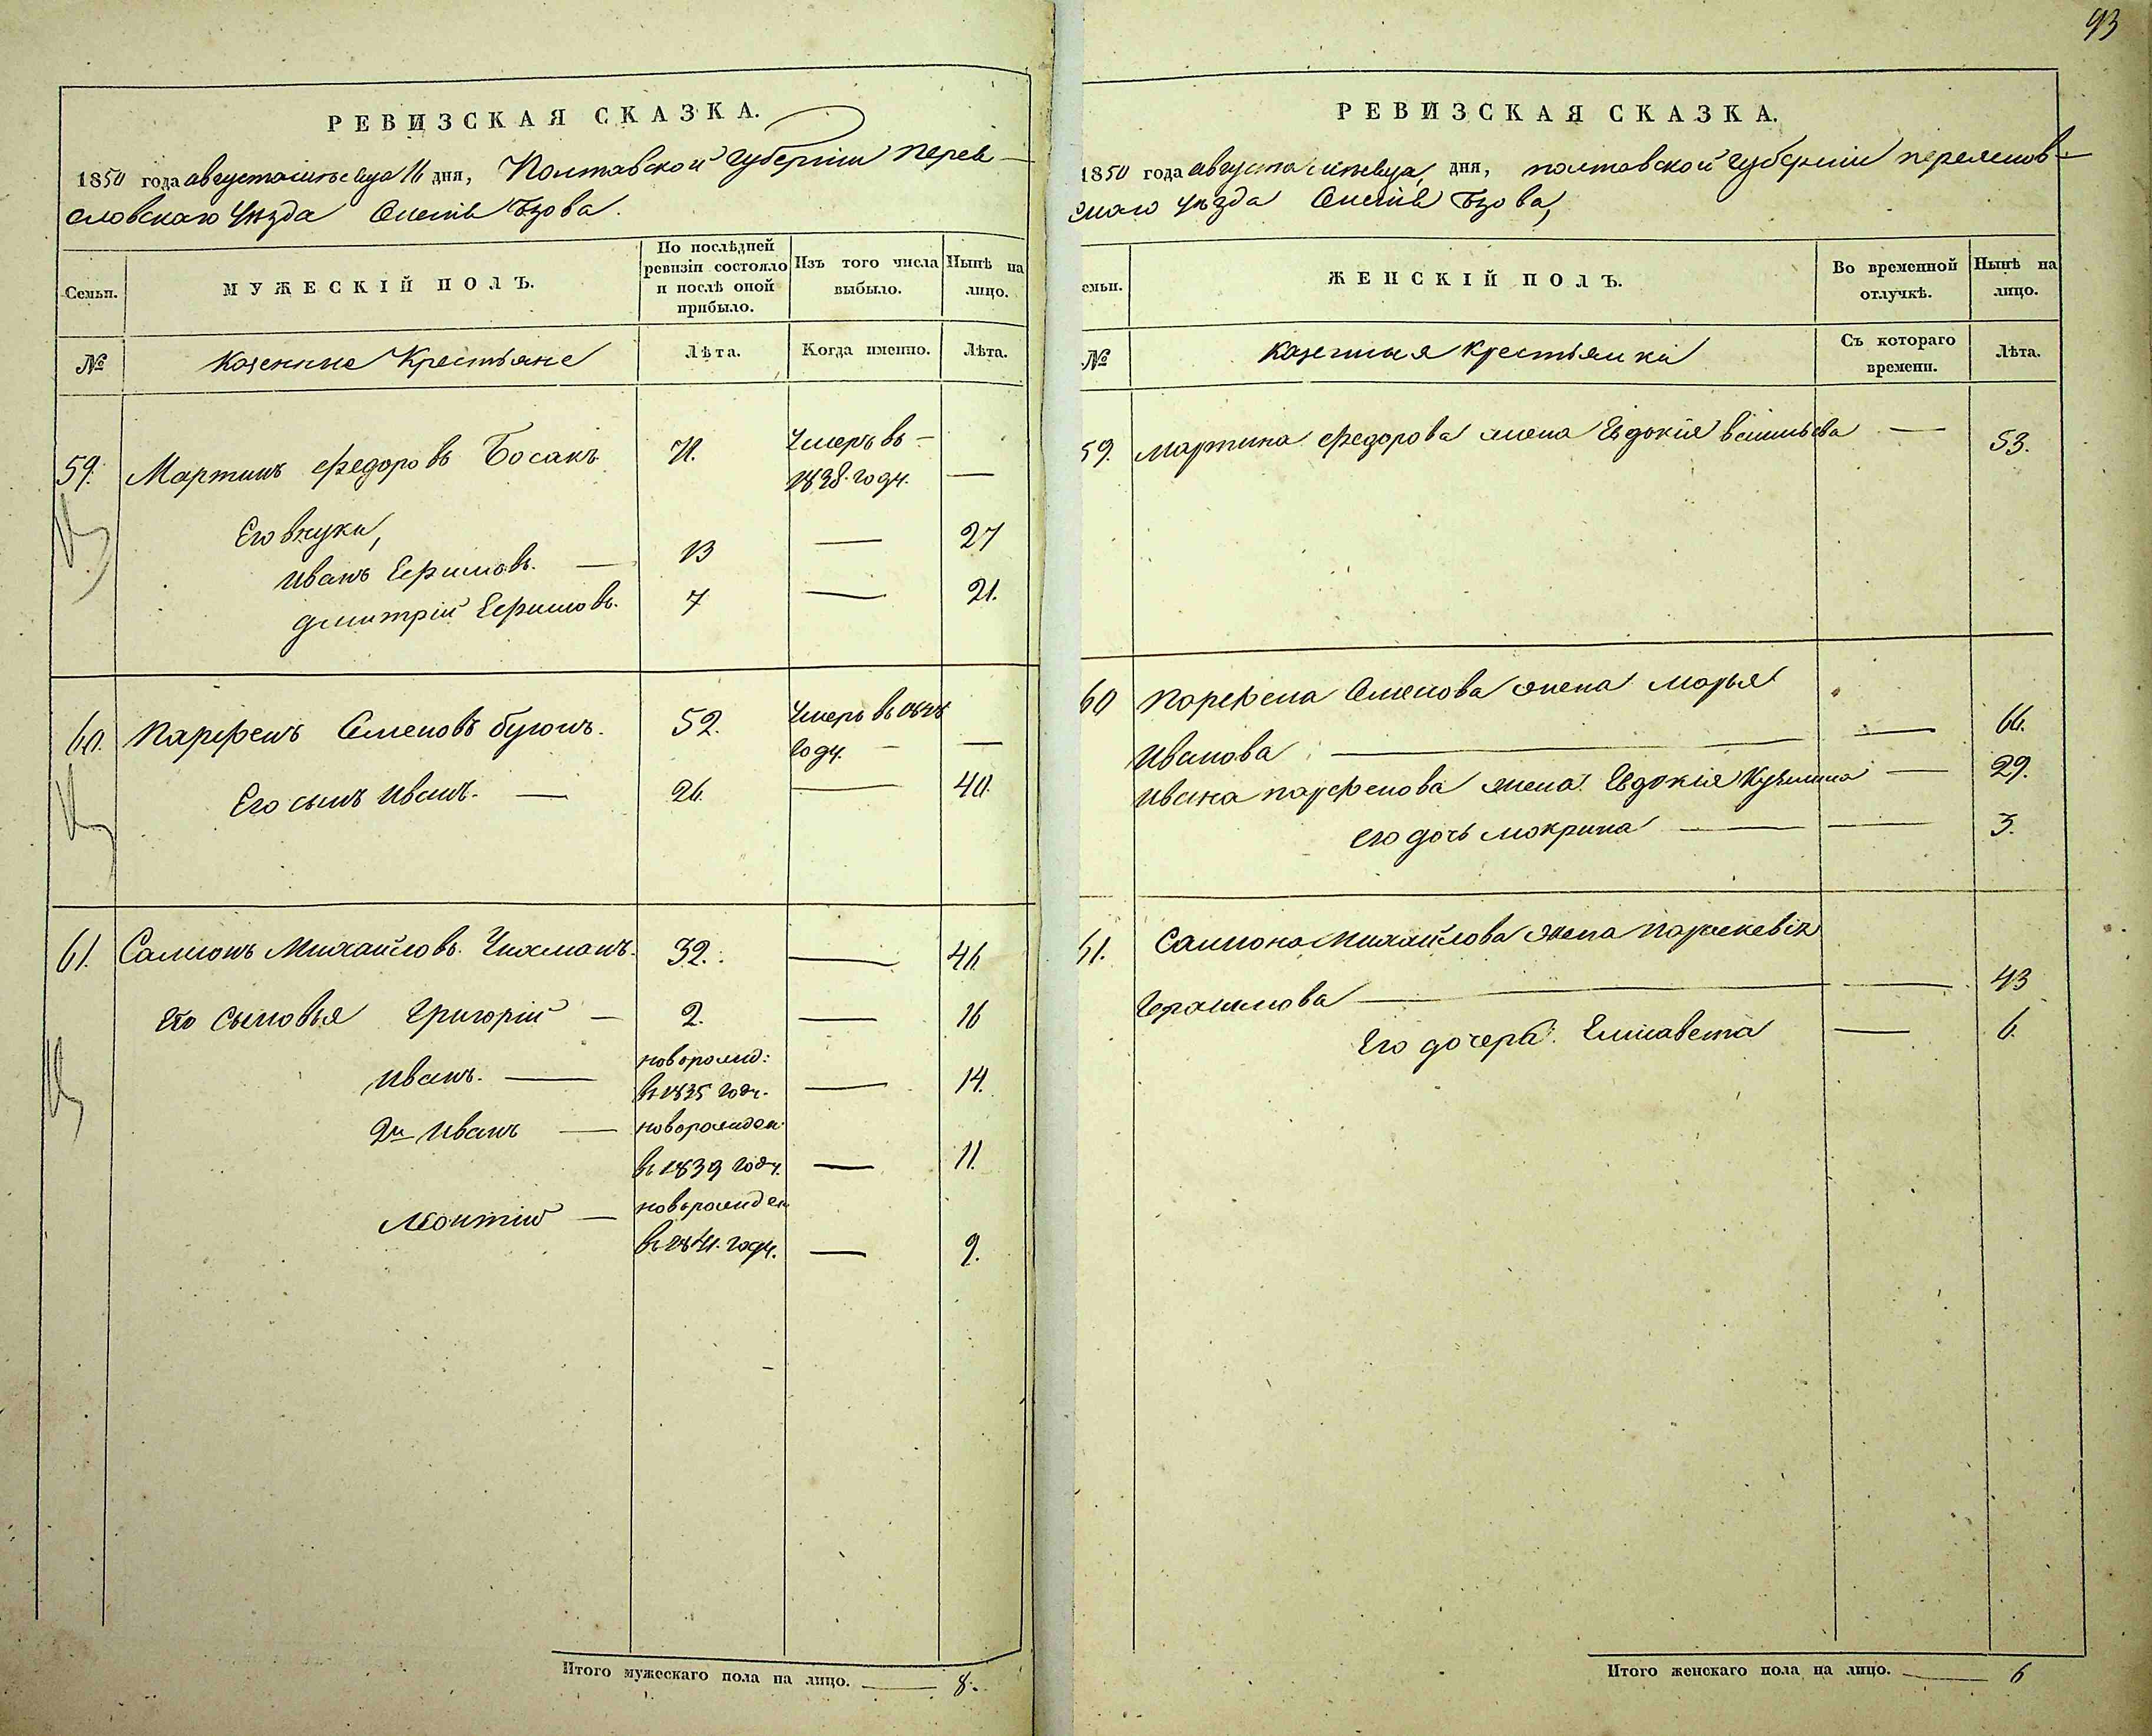 93
РЕВИЗСКАЯ СКАЗКА.
1850 года августа месяца 16 дня, Полтавской Губерніи Перея-
словскаго Уезда Селенія Бзова.
Семьи.
МУЖЕСКІЙ ПОЛЪ.
По послѣдней ревизіи состояло и послѣ оной прибыло.
Изъ того числа выбыло.
Нынѣ на лицо.
№
Казенные Крестьяне
Лѣта.
Когда именно.
Лѣта.
59. Мартинъ Федоровъ Босакъ 71. Умеръ въ
1838. году. —
Его внуки,
Иванъ Ефимовъ. — 13 — 27
Дмитрій Ефимовъ. 7 — 21.
60. Парфенъ Семеновъ 52. Умеръ въ
году. — —
Его сынъ Иванъ. — 26. — 40.
61. Самсонъ Михайловъ. 32. — 46
Его Сыновья Григорій — 2. — 16
Иванъ. — новорожд:
въ 1835 году. — 14.
2й Иванъ — новорожден:
въ 1839 году. — 11.
Леонтій — новорожден
въ 1841. году. — 9.
Итого мужескаго пола на лицо. — 8.
РЕВИЗСКАЯ СКАЗКА.
1850 года августа месяца, дня, полтавской Губерніи переяслов-
скаго уезда Селенія Бзова,
емьи.
ЖЕНСКІЙ ПОЛЪ.
Во временной отлучкѣ.
Нынѣ на лицо.
№
Казенныя Крестьянки
Съ котораго времени.
Лѣта.
59. Мартина Федорова жена Евдокія Васильева — 53.
60 Парфена Семенова жена Марья
Иванова — — 66.
Ивана парфенова жена Евдокія Кузьмина — 29.
его дочь Мокрина — — 3.
61. Самсона Михайлова жена Параскевія
Герасимова — — 43
Его дочерь Елисавета — 6.
Итого женскаго пола на лицо. — 6